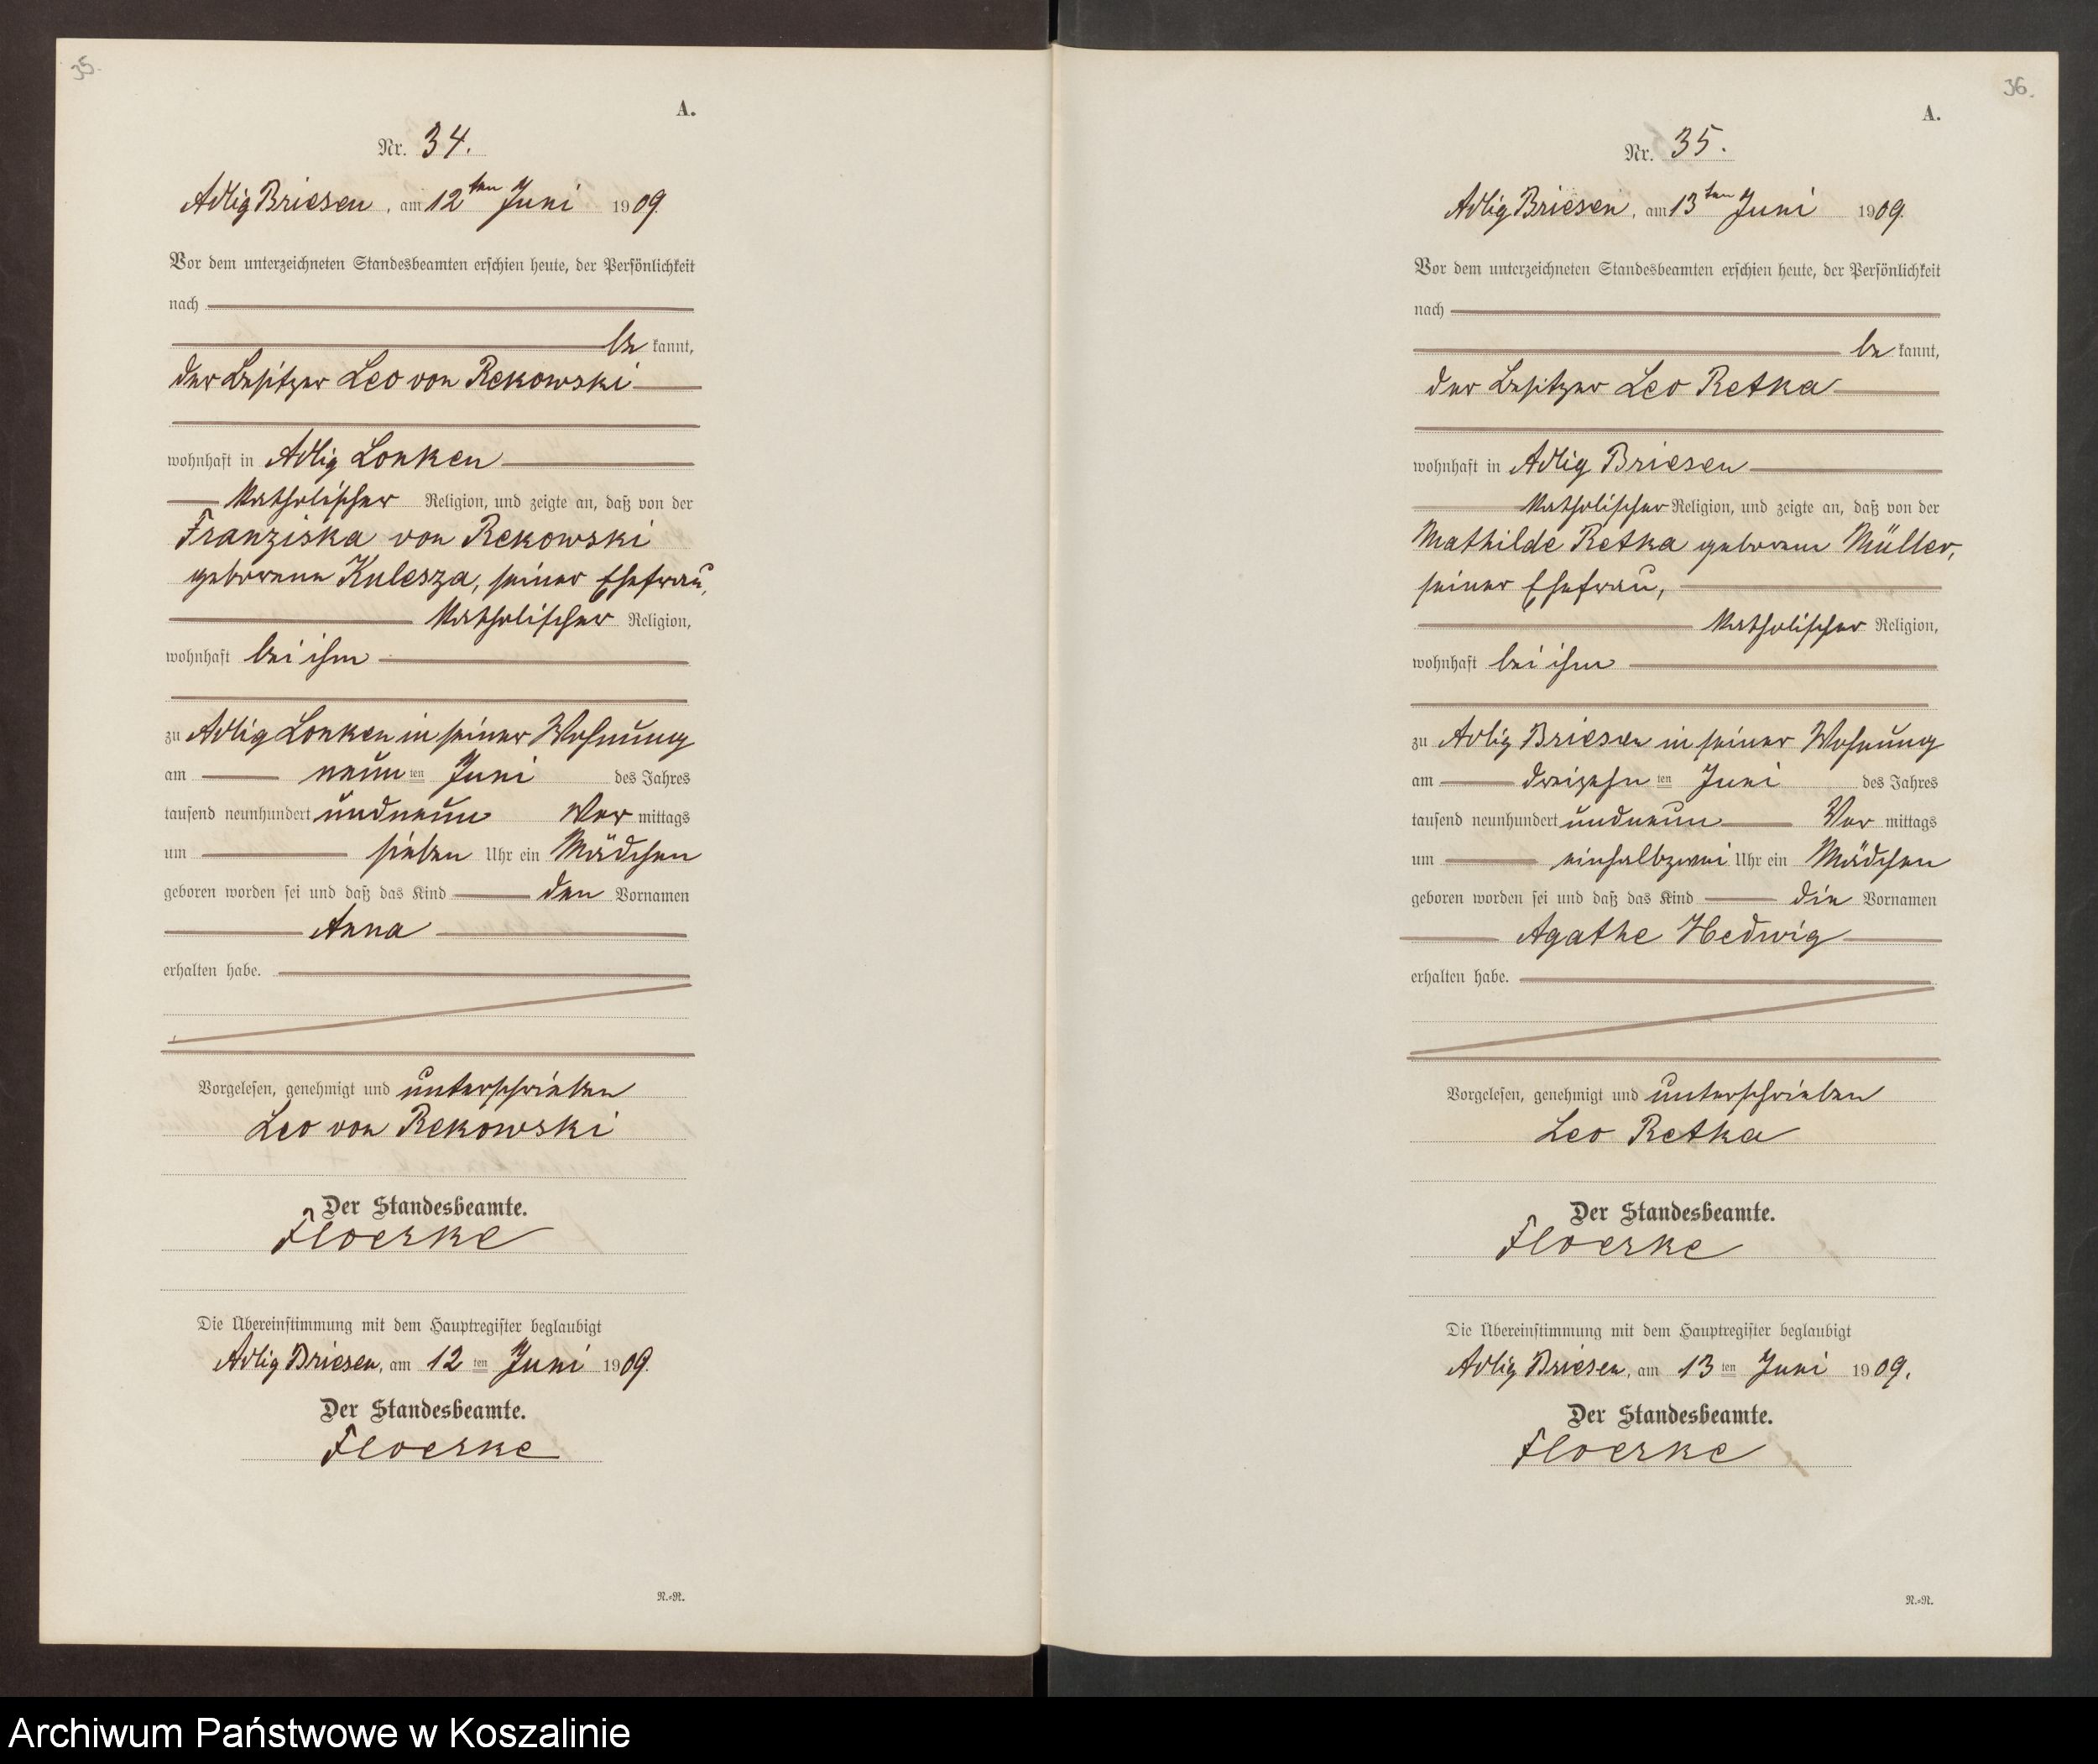 35.
A.
Nr. 34.
Adlig Briesen, am 12ten Juni 1909.
Vor dem unterzeichneten Standesbeamten erschien heute, der Persönlichkeit
nach
be kannt,
der Besitzer Leo von Rekowski
wohnhaft in Adlig Lonken
katholischer Religion, und zeigte an, daß von der
Franziska von Rekowski
geborene Kulesza, seiner Ehefrau,
katholischer Religion,
wohnhaft bei ihm
zu Adlig Lonken in seiner Wohnung
am neun ten Juni des Jahres
tausend neunhundert undneun Vor mittags
um sieben Uhr ein Mädchen
geboren worden sei und daß das Kind den Vornamen
Anna
erhalten habe.
Vorgelesen, genehmigt und unterschrieben
Leo von Rekowski
Der Standesbeamte.
Floerke
Die Übereinstimmung mit dem Hauptregister beglaubigt
Adlig Briesen, am 12 ten Juni 1909.
Der Standesbeamte.
Floerke
N.=N.
36.
A.
Nr. 35.
Adlig Briesen, am 13ten Juni 1909.
Vor dem unterzeichneten Standesbeamten erschien heute, der Persönlichkeit
nach
be kannt,
der Besitzer Leo Retka
wohnhaft in Adlig Briesen
katholischer Religion, und zeigte an, daß von der
Mathilde Retka geborene Müller,
seiner Ehefrau,
katholischer Religion,
wohnhaft bei ihm
zu Adlig Briesen in seiner Wohnung
am dreizehn ten Juni des Jahres
tausend neunhundert undneun Vor mittags
um einhalbzwei Uhr ein Mädchen
geboren worden sei und daß das Kind die Vornamen
Agathe Hedwig
erhalten habe.
Vorgelesen, genehmigt und unterschrieben
Leo Retka
Der Standesbeamte.
Floerke
Die Übereinstimmung mit dem Hauptregister beglaubigt
Adlig Briesen, am 13 ten Juni 1909.
Der Standesbeamte.
Floerke
N.=N.
Archiwum Państwowe w Koszalinie